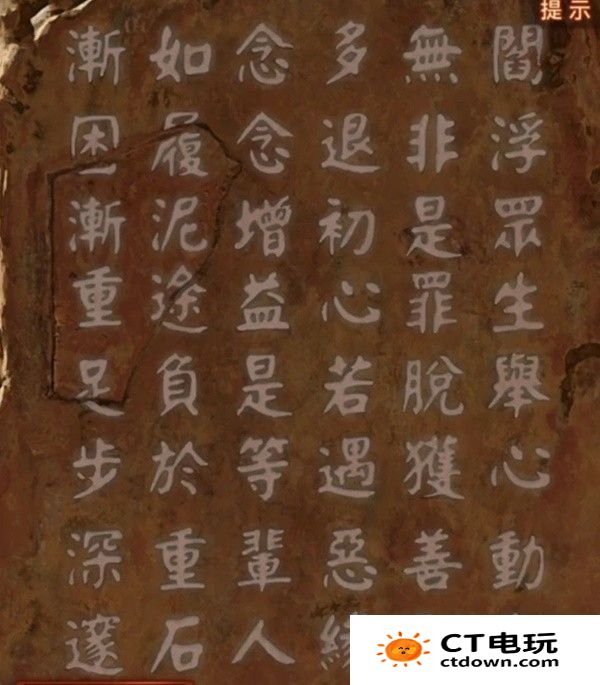 提示
閻浮眾生舉心動
無非是罪脫獲善
多退初心若遇惡
念念增益是等輩人
如履泥途負於重石
漸困漸重足步深邃
CT电玩
ctdown.com